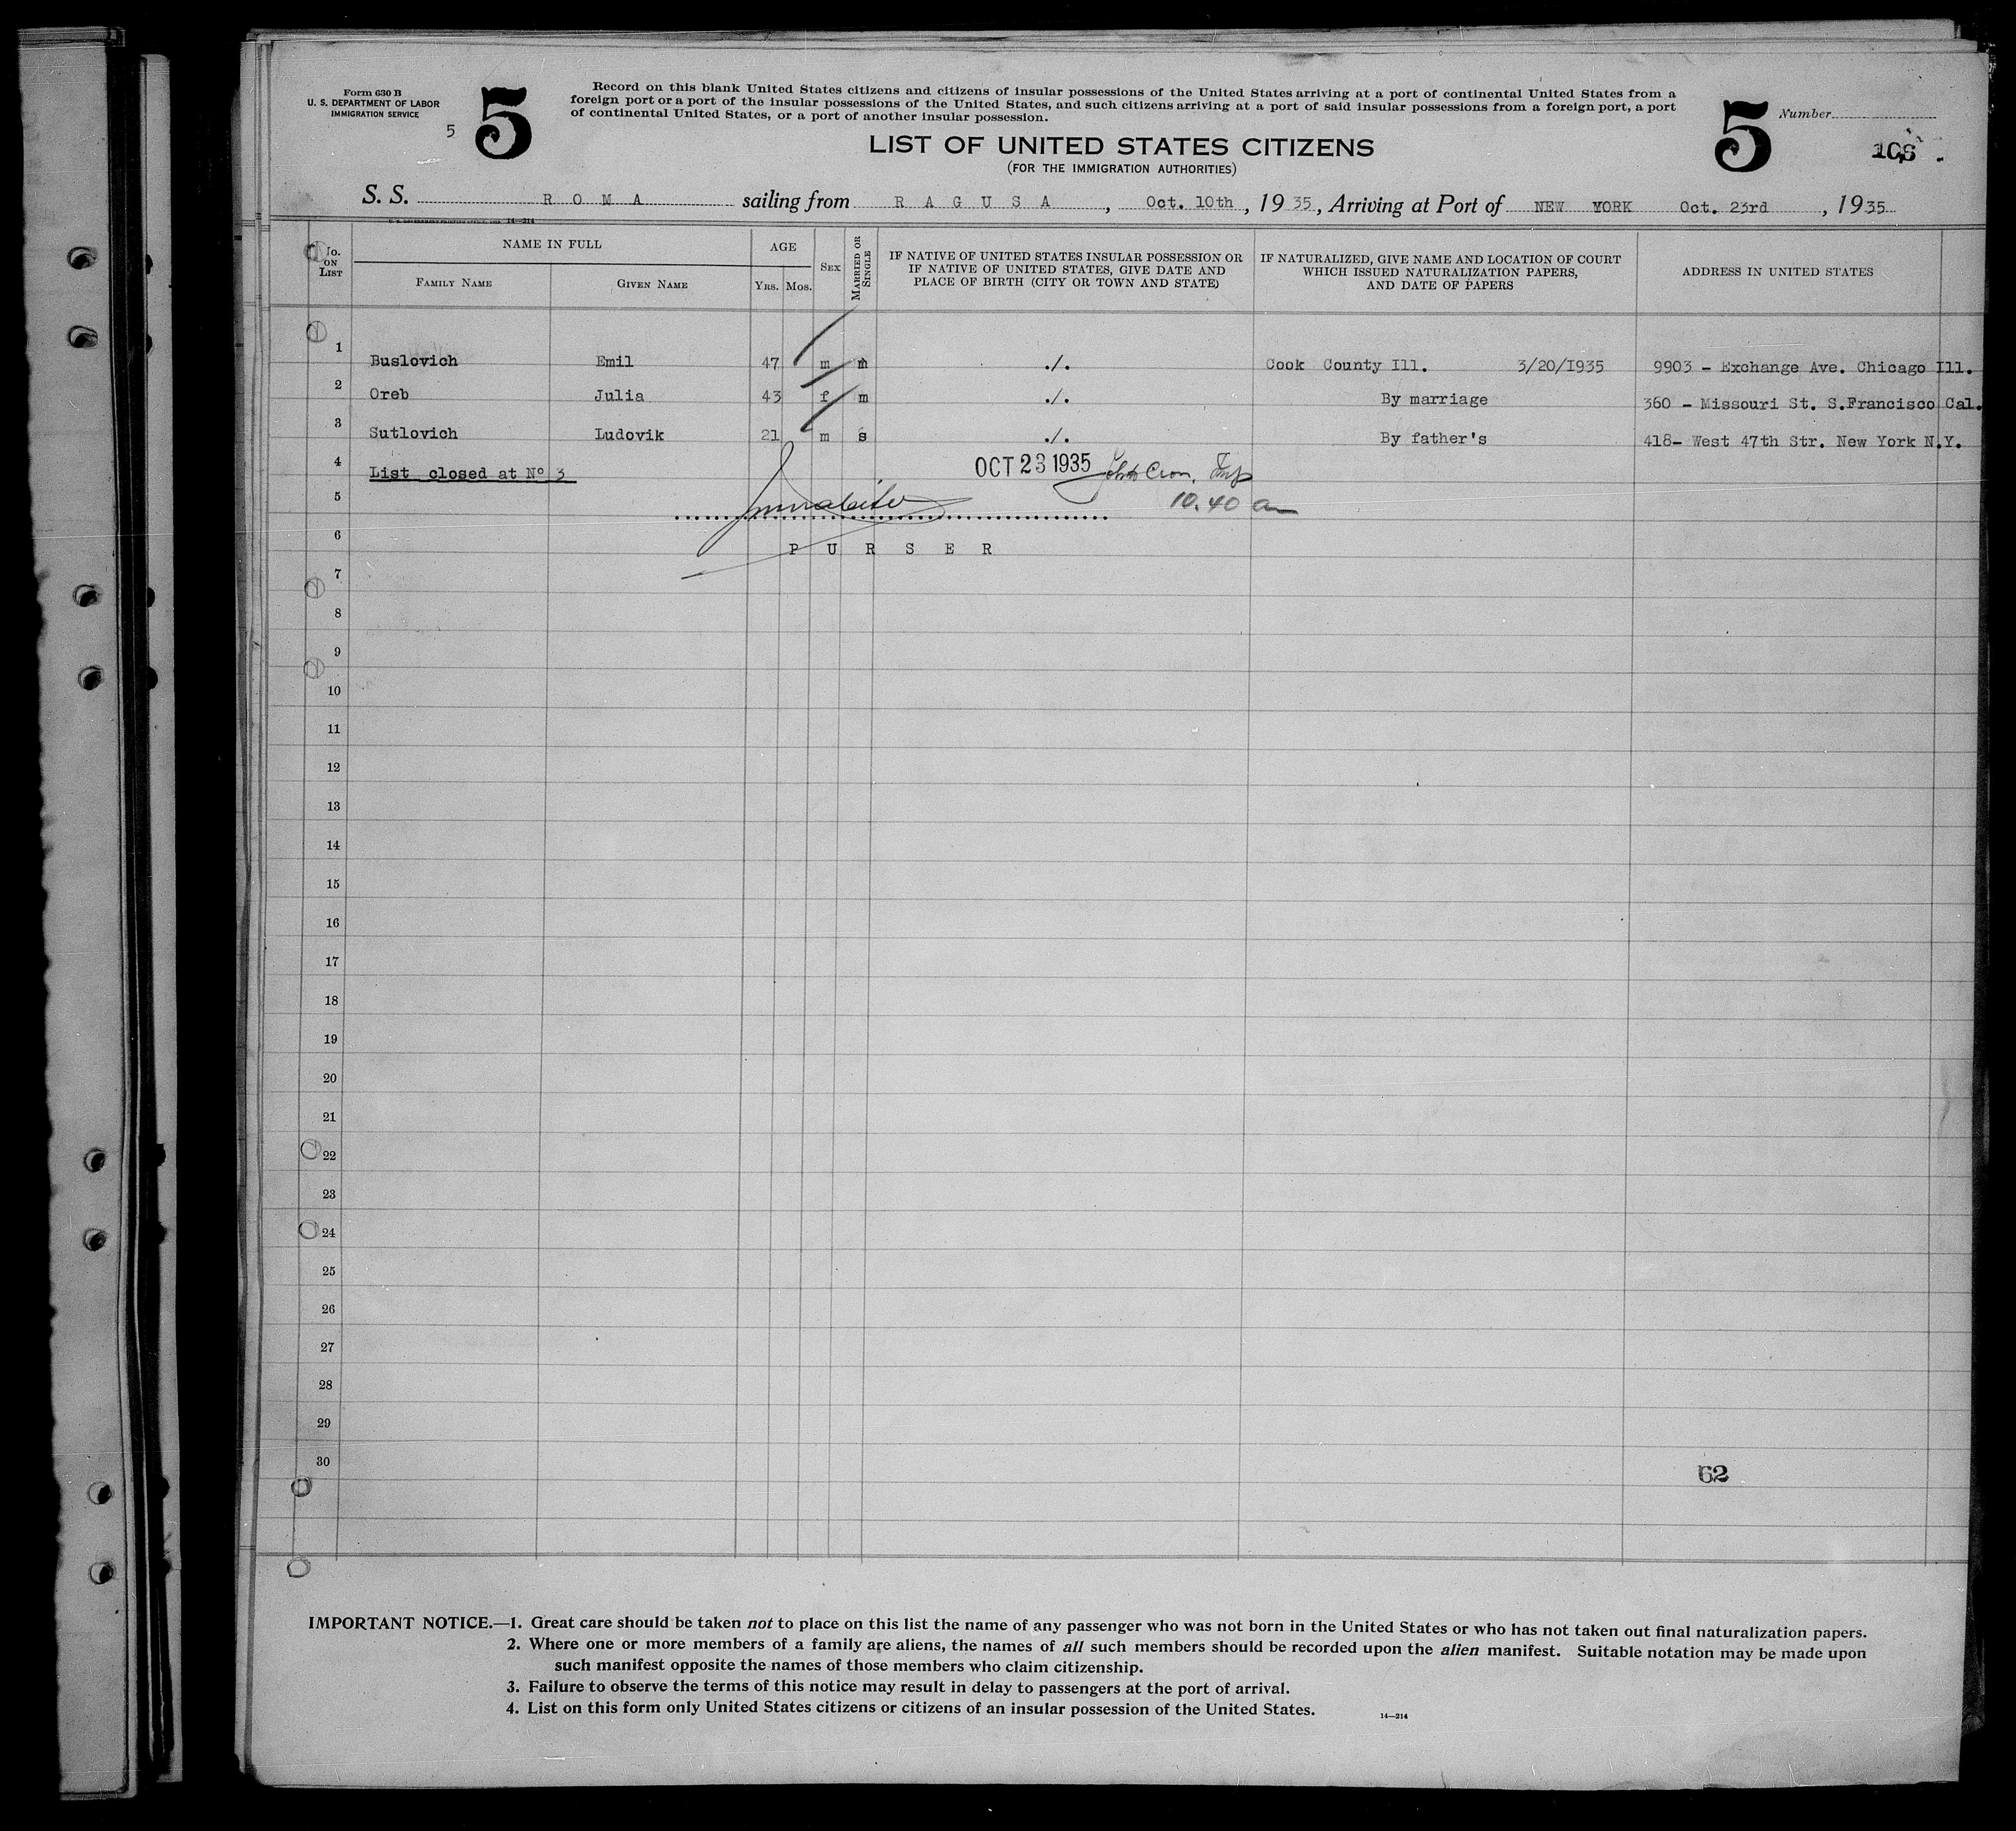 Form 630 B
U. S. DEPARTMENT OF LABOR
IMMIGRATION SERVICE
5
5
Record on this blank United States citizens and citizens of insular possessions of the United States arriving at a port of continental United States from a
foreign port or a port of the insular possessions of the United States, and such citizens arriving at a port of said insular possessions from a foreign port, a port
of continental United States, or a port of another insular possession.
5
Number
LIST OF UNITED STATES CITIZENS
(FOR THE IMMIGRATION AUTHORITIES)
S. S. ROMA sailing from RAGUSA, Oct. 10th, 1935, Arriving at Port of NEW YORK Oct. 23rd, 1935
14—214
No. ON LIST
NAME IN FULL
FAMILY NAME
GIVEN NAME
AGE
YRS. MOS.
SEX
MARRIED OR SINGLE
IF NATIVE OF UNITED STATES INSULAR POSSESSION OR
IF NATIVE OF UNITED STATES, GIVE DATE AND
PLACE OF BIRTH (CITY OR TOWN AND STATE)
IF NATURALIZED, GIVE NAME AND LOCATION OF COURT
WHICH ISSUED NATURALIZATION PAPERS,
AND DATE OF PAPERS
ADDRESS IN UNITED STATES
1 Buslovich Emil 47 m m ./. Cook County Ill. 3/20/1935 9903 - Exchange Ave. Chicago Ill.
2 Oreb Julia 43 f m ./. By marriage 360 - Missouri St. S.Francisco Cal.
3 Sutlovich Ludovik 21 m s ./. By father's 418- West 47th Str. New York N.Y.
4 List closed at Nº 3 OCT 23 1935
5 10.40 am
6 PURSER
7
8
9
10
11
12
13
14
15
16
17
18
19
20
21
22
23
24
25
26
27
28
29
30
62
IMPORTANT NOTICE.—1. Great care should be taken not to place on this list the name of any passenger who was not born in the United States or who has not taken out final naturalization papers.
2. Where one or more members of a family are aliens, the names of all such members should be recorded upon the alien manifest. Suitable notation may be made upon
such manifest opposite the names of those members who claim citizenship.
3. Failure to observe the terms of this notice may result in delay to passengers at the port of arrival.
4. List on this form only United States citizens or citizens of an insular possession of the United States.
14—214